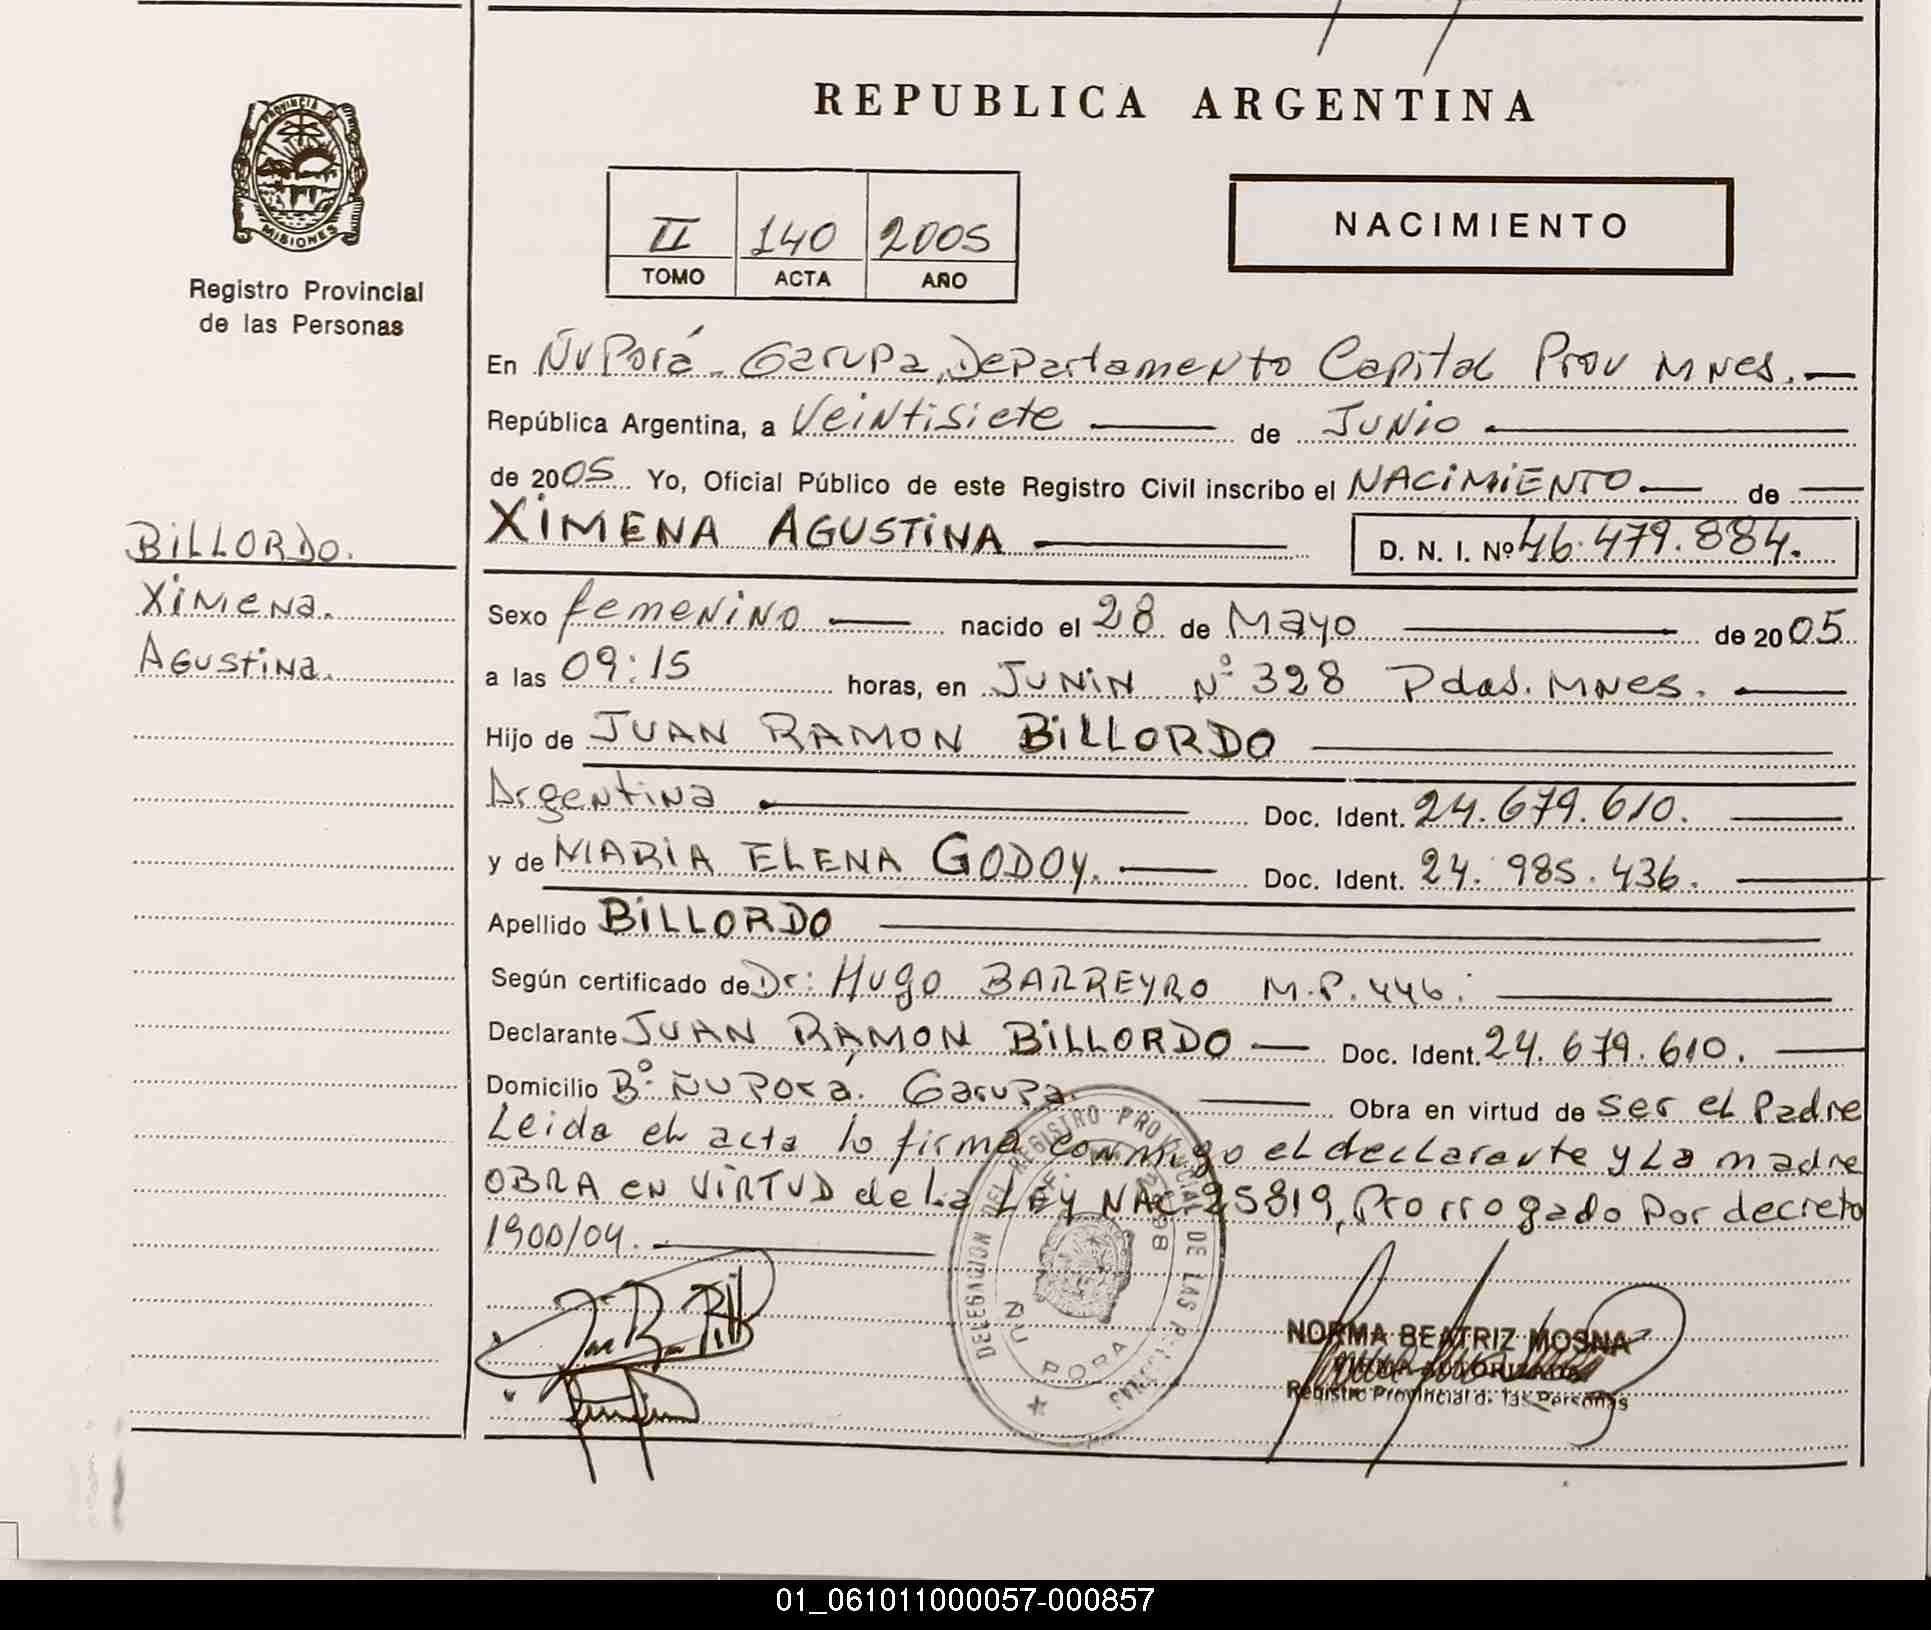 REPUBLICA ARGENTINA
PROVINCIA DE
MISIONES
Registro Provincial
de las Personas
II 140 2005
TOMO ACTA AÑO
NACIMIENTO
En Ñu Porá - Garupa, Departamento Capital Prov Mnes.
República Argentina, a Veintisiete de Junio
de 2005 Yo, Oficial Público de este Registro Civil inscribo el NACIMIENTO de
XIMENA AGUSTINA D. N. I. Nº 46.479.884.
BILLORDO.
Ximena.
Agustina.
Sexo femenino nacido el 28 de Mayo de 2005
a las 09:15 horas, en JUNIN Nº 328 Pdas. Mnes.
Hijo de JUAN RAMON BILLORDO
Argentina Doc. Ident. 24.679.610.
y de MARIA ELENA GODOY. Doc. Ident. 24.985.436.
Apellido BILLORDO
Según certificado de Dr: Hugo BARREYRO M.P. 446.
Declarante JUAN RAMON BILLORDO Doc. Ident. 24.679.610.
Domicilio Bº ÑU PORA. Garupa. Obra en virtud de ser el Padre
Leida el acta lo firma conmigo el declarante y La madre
OBRA en VIRTUD de La LEY NAC 25819, Prorrogado Por decreto
1900/04.
DELEGACION DEL REGISTRO PROVINCIAL DE LAS PERSONAS
ÑU PORA
NORMA BEATRIZ MOSNA
Registro Provincial de las Personas
01_061011000057-000857